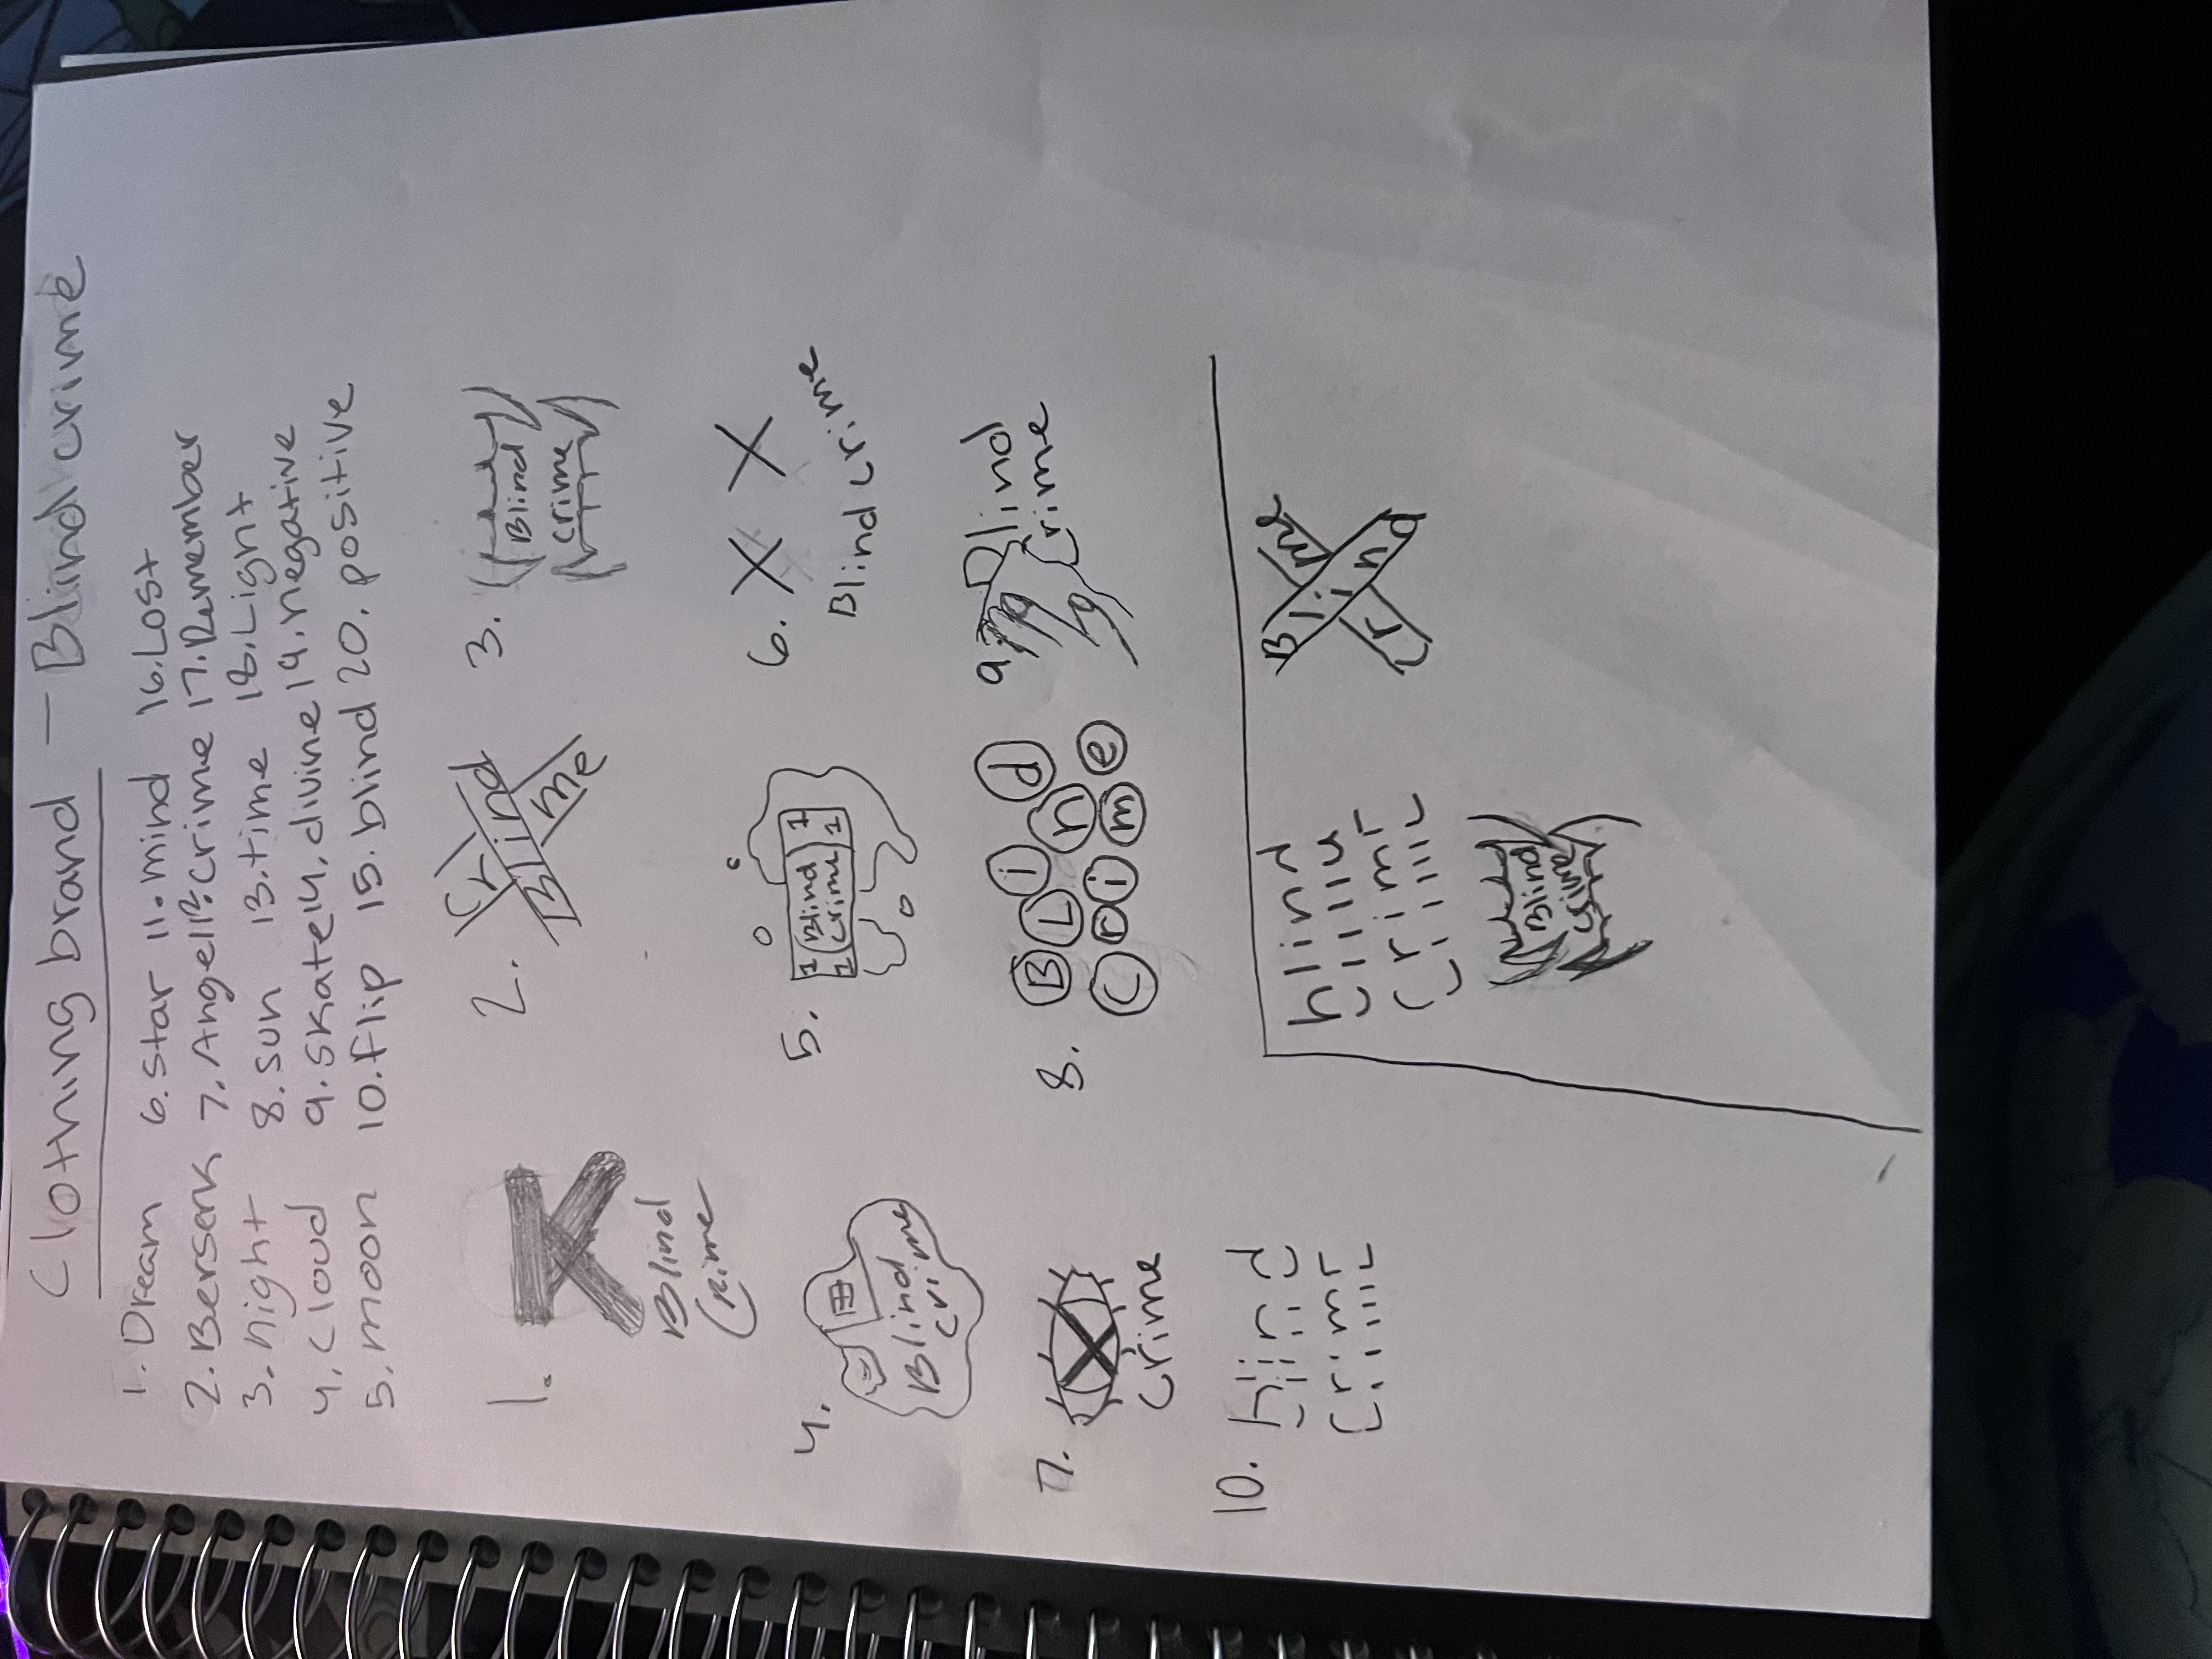 Clothing brand - Blind crime
1. Dream 6. star 11. mind 16. Lost
2. Berserk 7. Angel 12. crime 17. Remember
3. night 8. sun 13. time 18. Light
4. cloud 9. skate 14. divine 19. negative
5. moon 10. flip 15. blind 20. positive
1. X
Blind
Crime
2. Crime
Blind
3. Blind
Crime
4. Blind
crime
5. 1 Blind 1
1 Crime 1
6. X X
Blind Crime
7. X
Crime
8. BLind
Crime
9. Blind
Crime
10. blind
Crime
blind
Crime
Blind
Crime
Blind
Crime